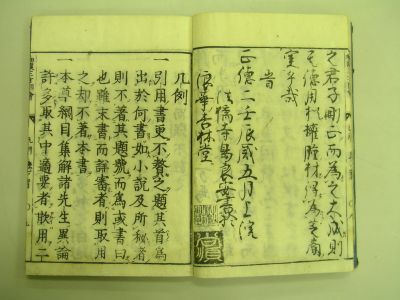 之君子開正而為之大成則
室乎哉
旹
正德二壬辰歲五月上浣
法橋寺島良安書於
浪華杏林堂
凡例
一別用書更不贅之題其首為
出於何書如小說及所秘者
則不著其題號而為或書曰
也雖末書而詳審者則取用
之却不著本書
一本草綱目集解諸先生異論
許多取其中適要者散用二